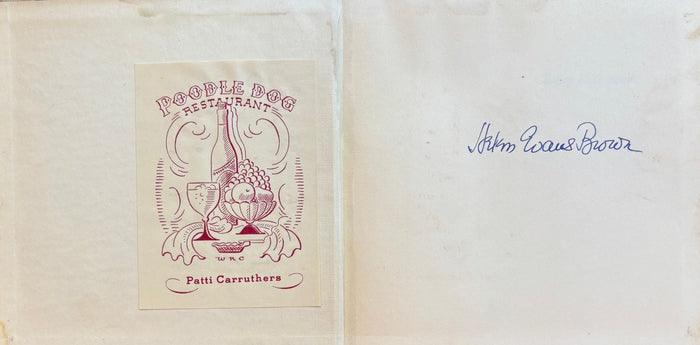 POODLE DOG
RESTAURANT
W R C
Patti Carruthers
Helen Evans Brown